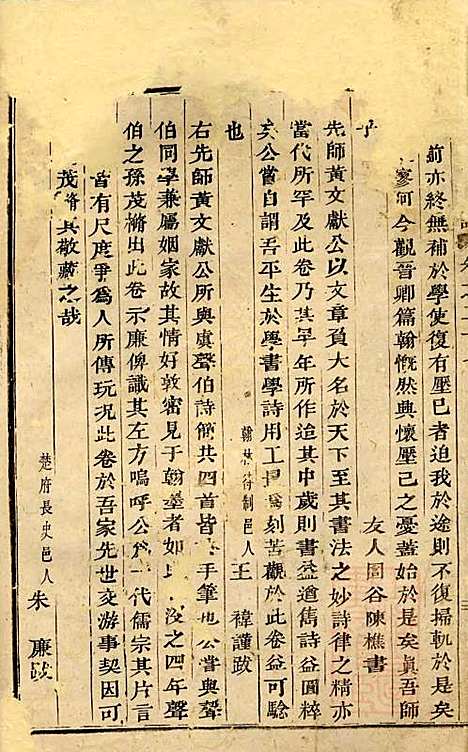 前亦終無補於學使復有壓已者迫我於途則不復掃軌於是矣
寥何今觀晉卿篇翰慨然興懷壓己之憂蓋始於是矣真吾師
友人圁谷陳樵書
先師黄文獻公以文章負大名於天下至其書法之妙詩律之精亦
當代所罕及此卷乃其早年所作迨其中歲則書益遒雋詩益圓粹
矣公嘗自謂吾平生於學書學詩用工最為刻苦觀於此卷益可驗
也
待制邑人王 禕謹跋
右先師黄文獻公所與虞聲伯詩簡共四首皆 手筆也公嘗與聲
伯同學兼屬姻家故其情好敦密見于翰墨者如此 沒之四年聲
伯之孫茂脩出此卷示廉俾識其左方嗚呼公為一代儒宗其片言
皆有尺度爭為人所傳玩况此卷於吾家先世交游事契因可
茂脩其敬藏之哉
楚府長史邑人朱 廉跋